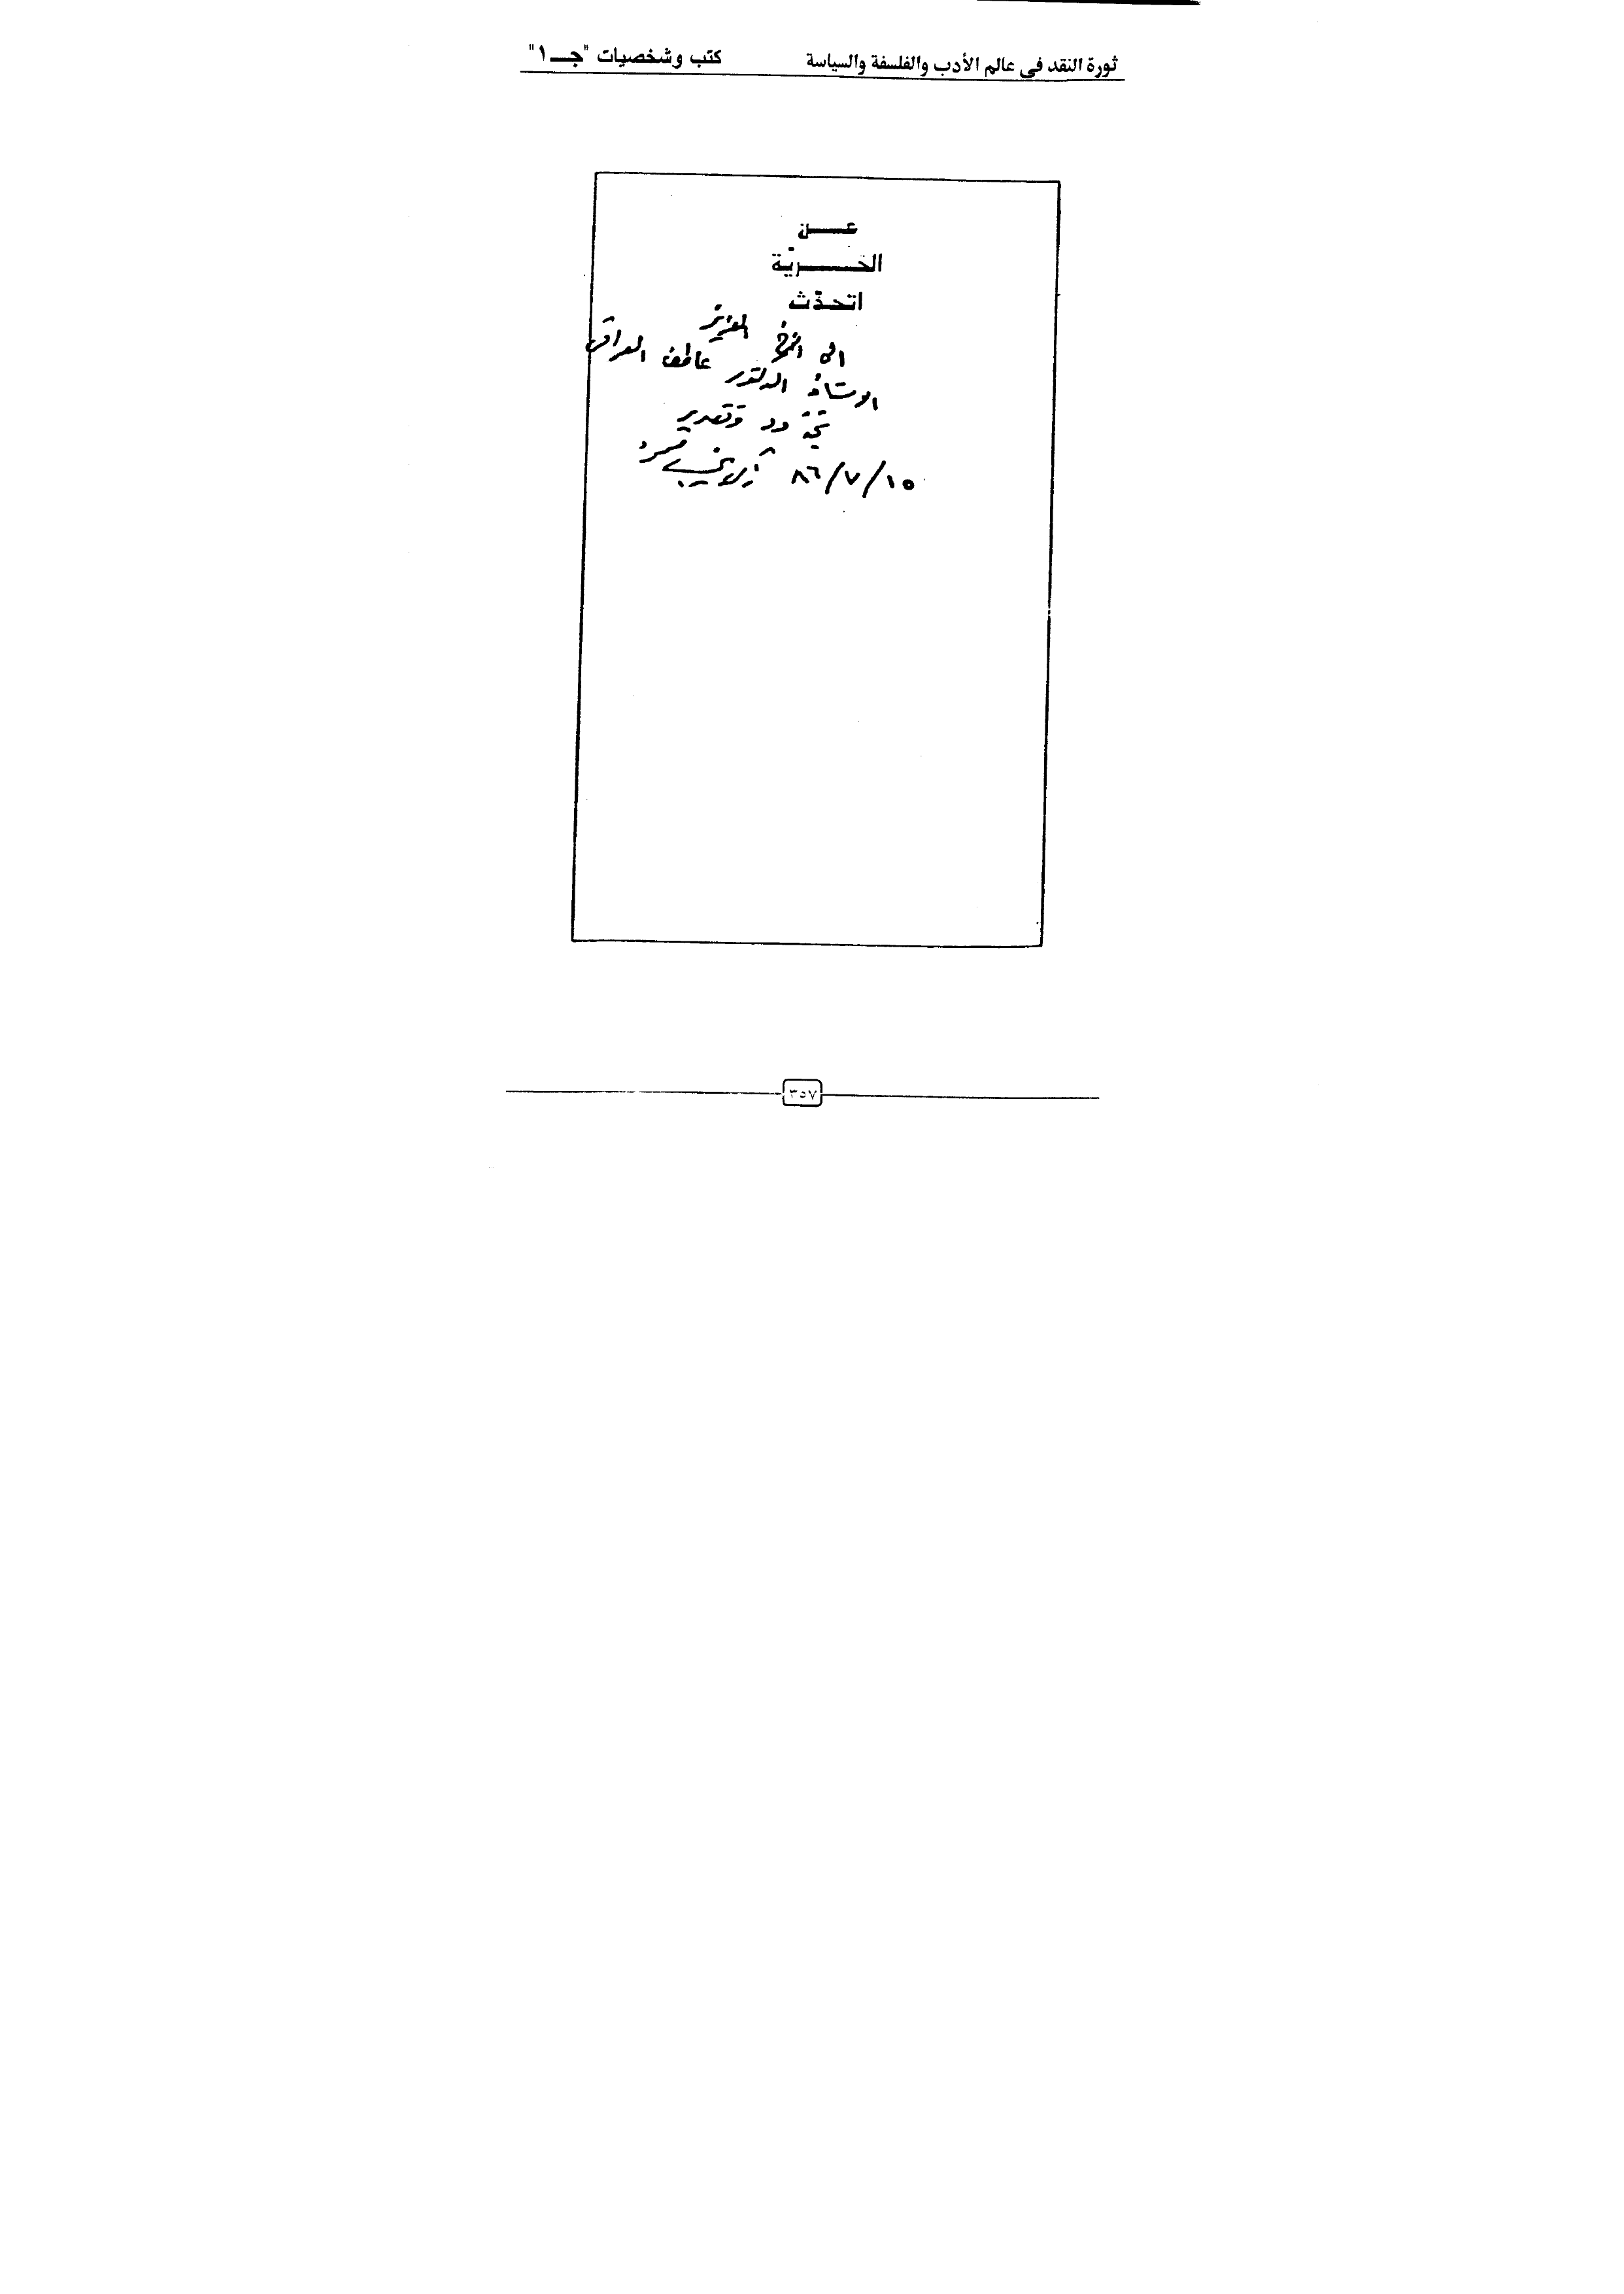 ثورة النقد فى عالم الأدب والفلسفة والسياسة كتب وشخصيات "جـــ١"
عـــن
الحـــــريّة
اتحدّث
الى الاخ العزيز
الاستاذ الدكتور عاطف العراقى
تحية ود وتقدير
١٥/٧/٨٦ زكى نجيب محمود
٣٥٧